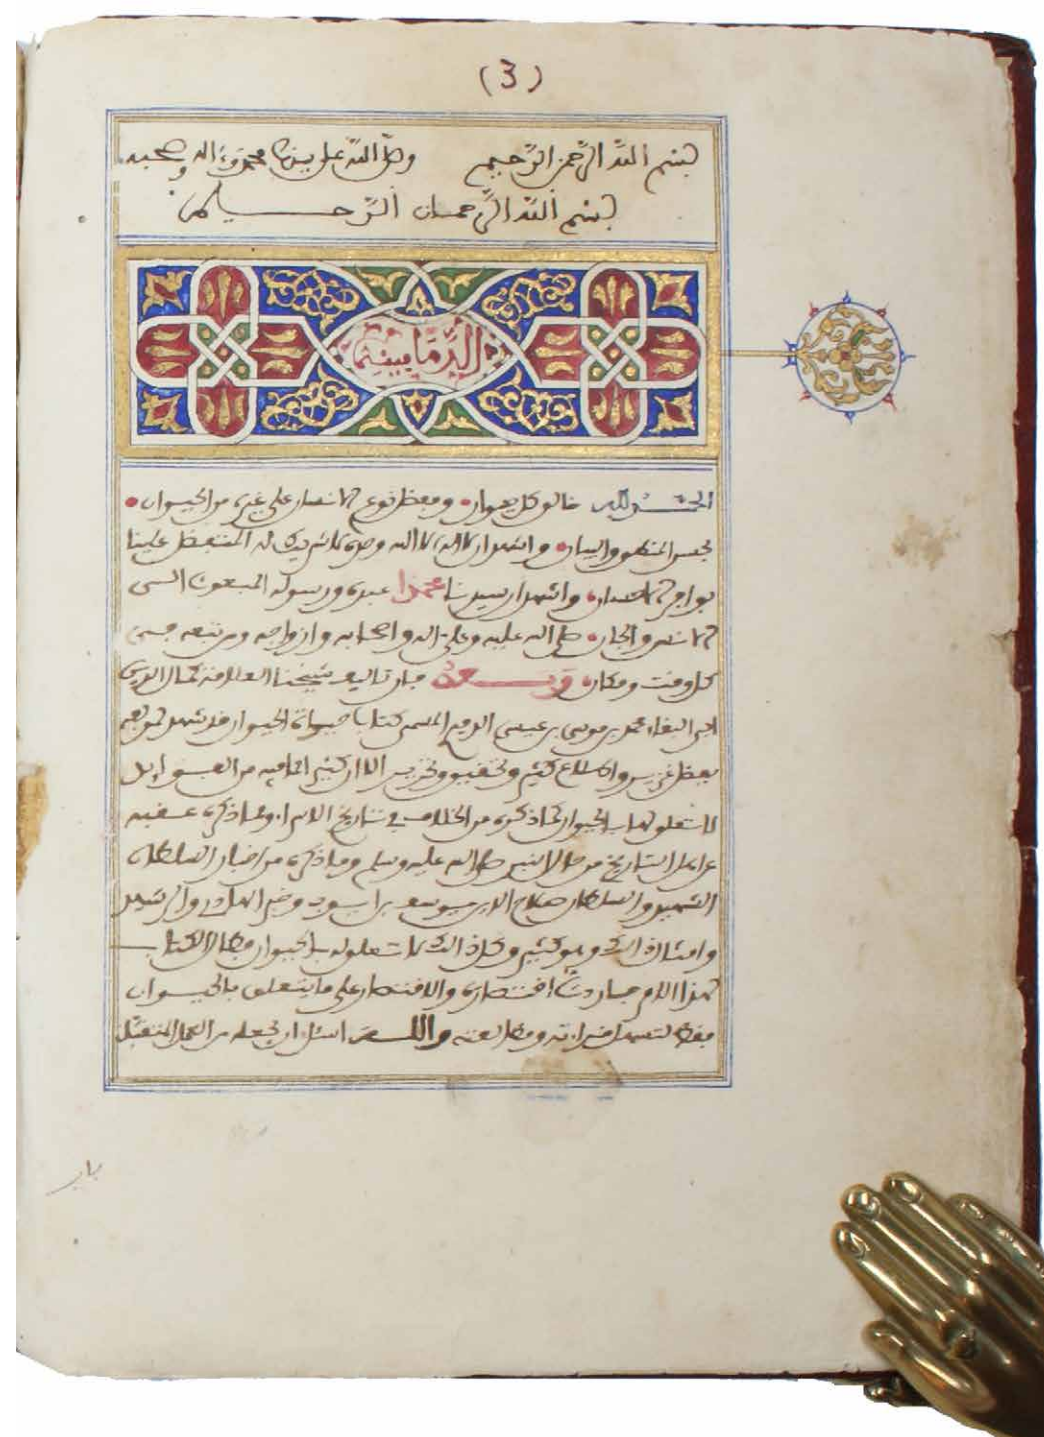 (3)
بسم الله الرحمن الرحيم وصلى الله على سيدنا محمد وءاله وصحبه
بسم الله الرحمان الرحيم
الدمامينية
الحمد لله خالق كل حيوان ومفضل نوع الانسان على غيره من الحيوان
بحسن المنطق والبيان واشهد ان لا اله الا الله وحده لا شريك له المتفضل علينا
بوافر الاحسان واشهد ان سيدنا محمدا عبده ورسوله المبعوث الى
الانس والجان صلى الله عليه وعلى اله واصحابه وازواجه ومن تبعه في
كل وقت ومكان وبعد فان تاليف شيخنا العلامة كمال الدين
ابي البقاء محمد بن موسى بن عيسى الدميري المسمى كتاب حياة الحيوان قد شهد لمؤلفه
بفضل غزير واطلاع كثير وتحقيق وتحرير الا ان كثيرا مما فيه من الفوائد
لا تعلق لها بالحيوان كما ذكره من الخلاف في تاريخ الاسراء وما ذكره عقبه
عن اهل التاريخ من حال النبي صلى الله عليه وسلم وما ذكره من اخبار السلطان
الشهيد والسلطان صلاح الدين يوسف بن ايوب وخبر المهدي والرشيد
وامثال ذلك وهو كثير وكل ذلك لا تعلق له بالحيوان فطال الكتاب
لهذا الامر فاردت اختصاره والاقتصار على ما يتعلق بالحيوان
فقط لتسهل قراءته ومطالعته والله اسئل ان يجعله من العمل المتقبل
بار